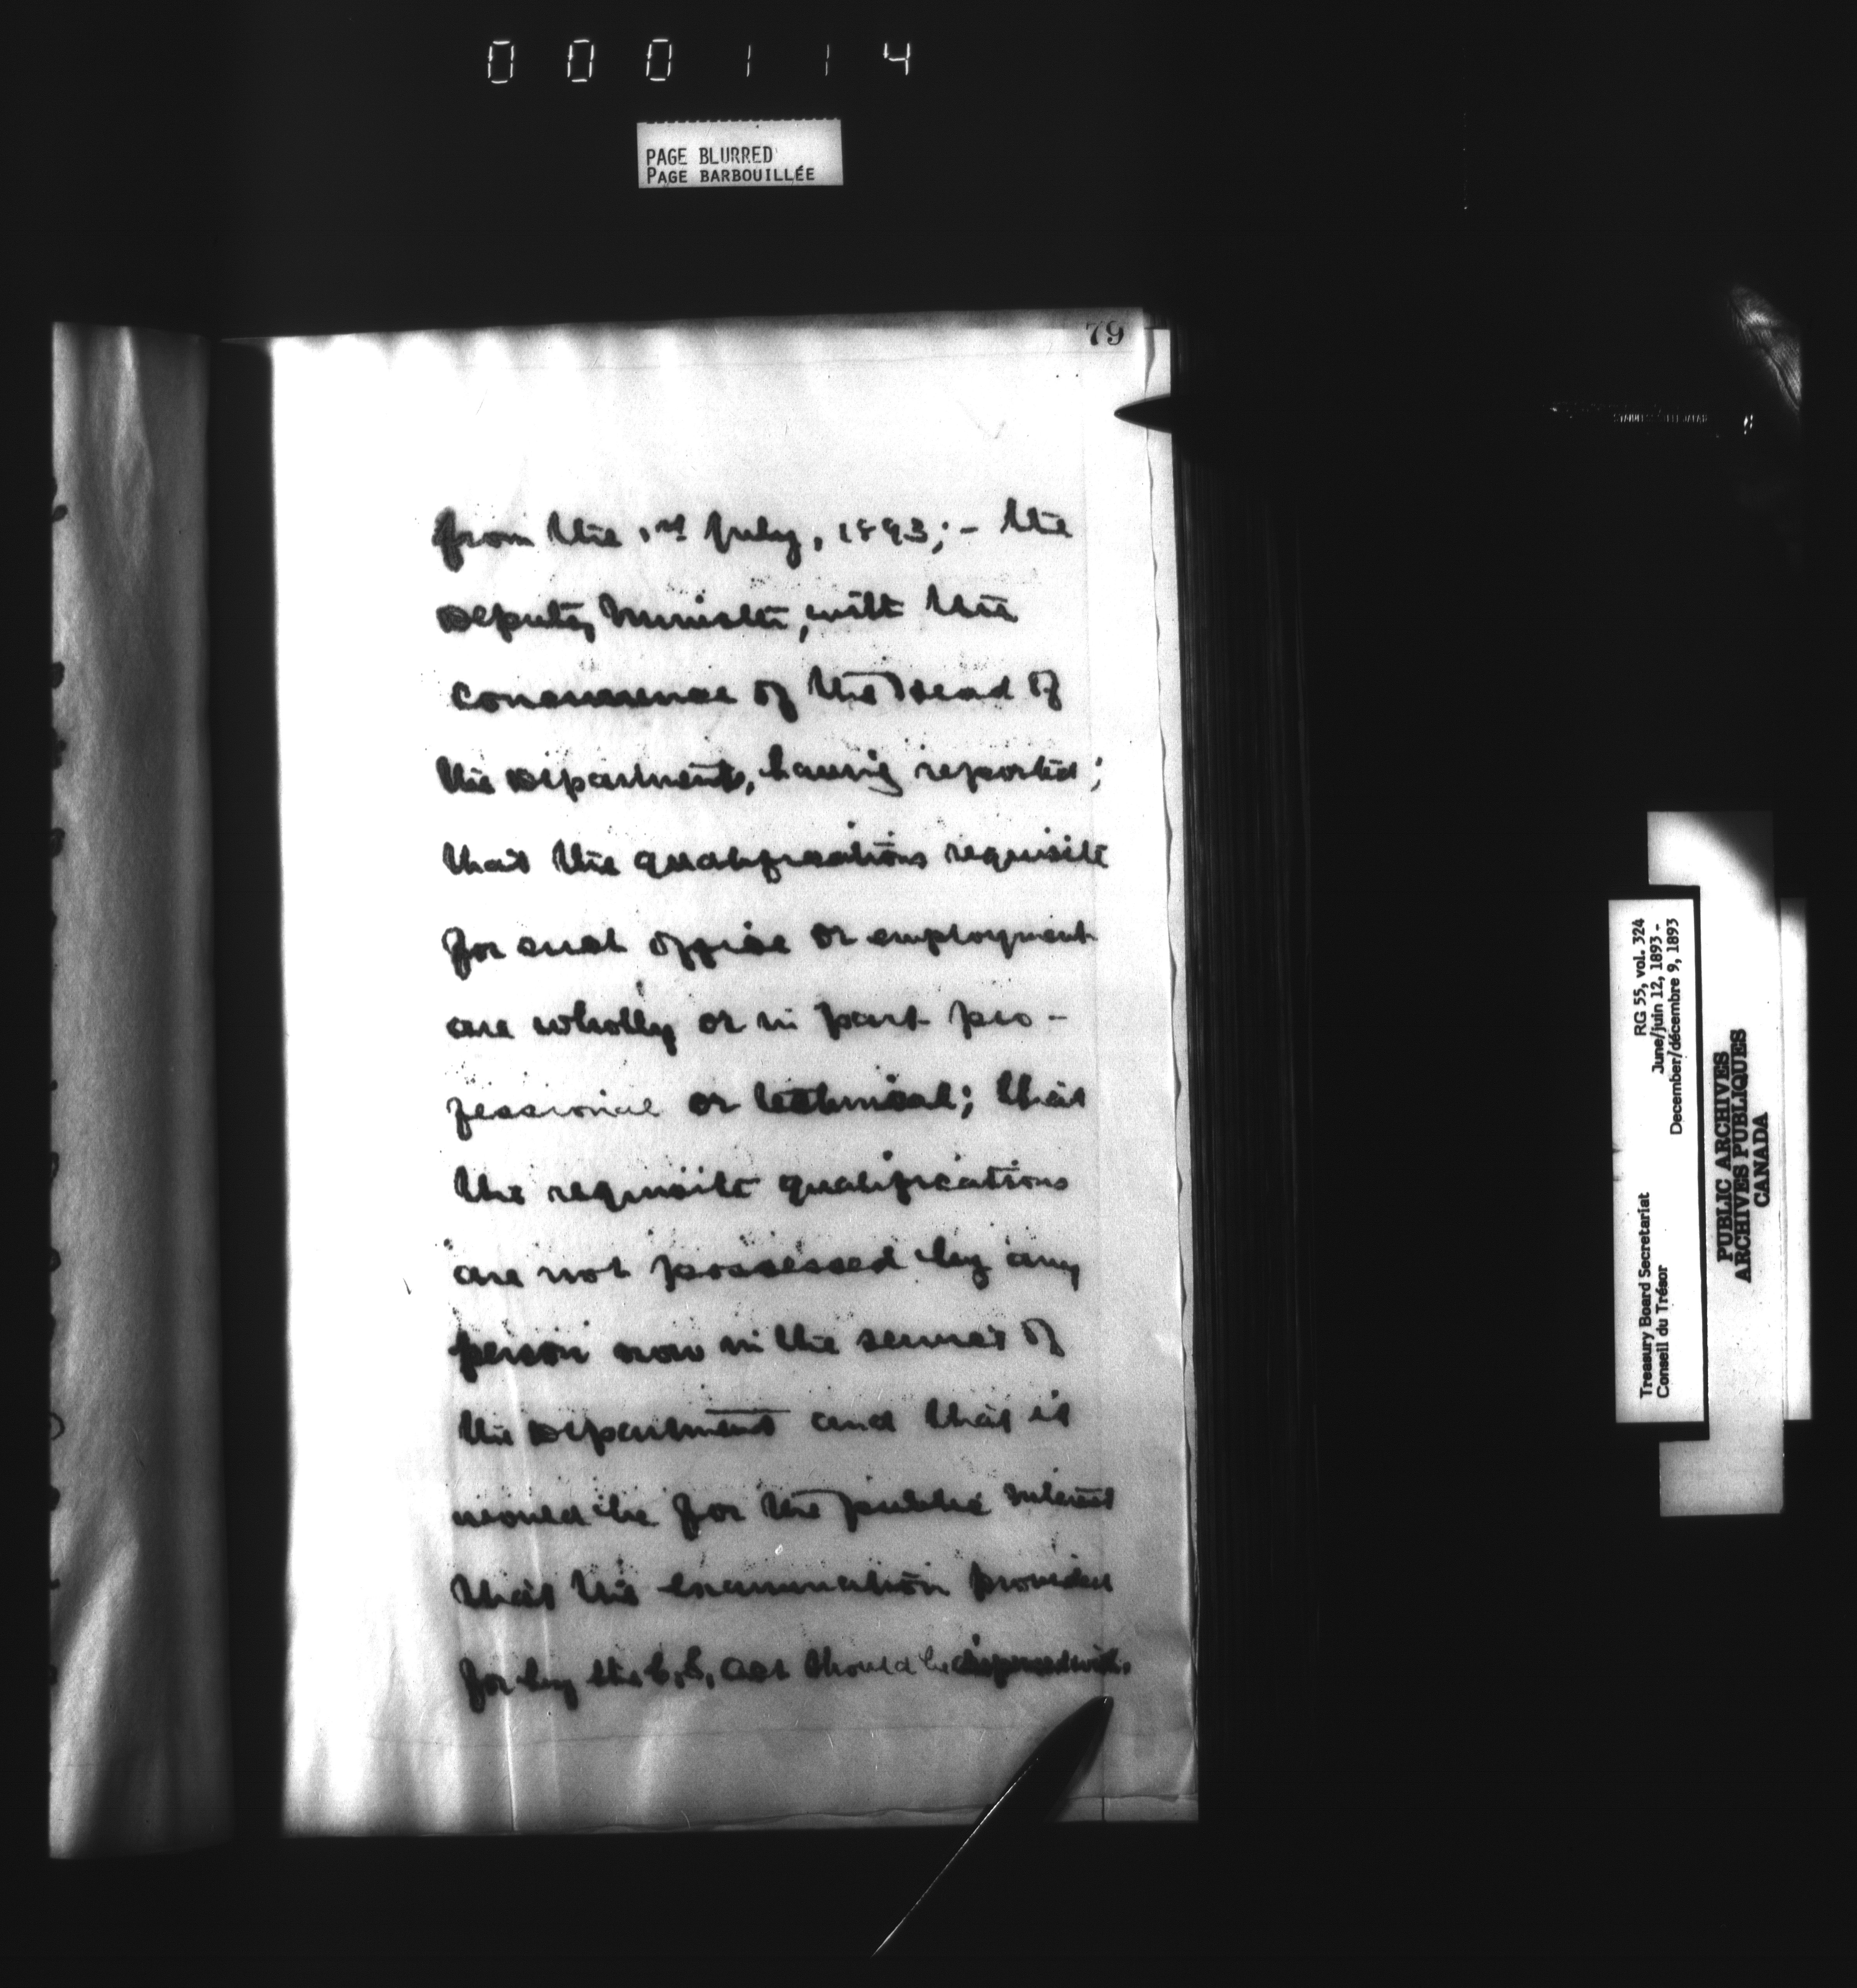 000114
PAGE BLURRED
PAGE BARBOUILLÉE
79
from the 1st July, 1893; - the
Deputy Minister, with the
concurrence of the Head of
the Department, having reported;
that the qualifications requisite
for such office or employment
are wholly or in part pro-
fessional or technical; that
the requisite qualifications
are not possessed by any
person now in the service of
the Department and that it
would be for the public interest
that the examination provided
for by the C. S. Act should be dispensed with.
Treasury Board Secretariat RG 55, vol. 324
Conseil du Trésor June/juin 12, 1893 -
December/décembre 9, 1893
PUBLIC ARCHIVES
ARCHIVES PUBLIQUES
CANADA